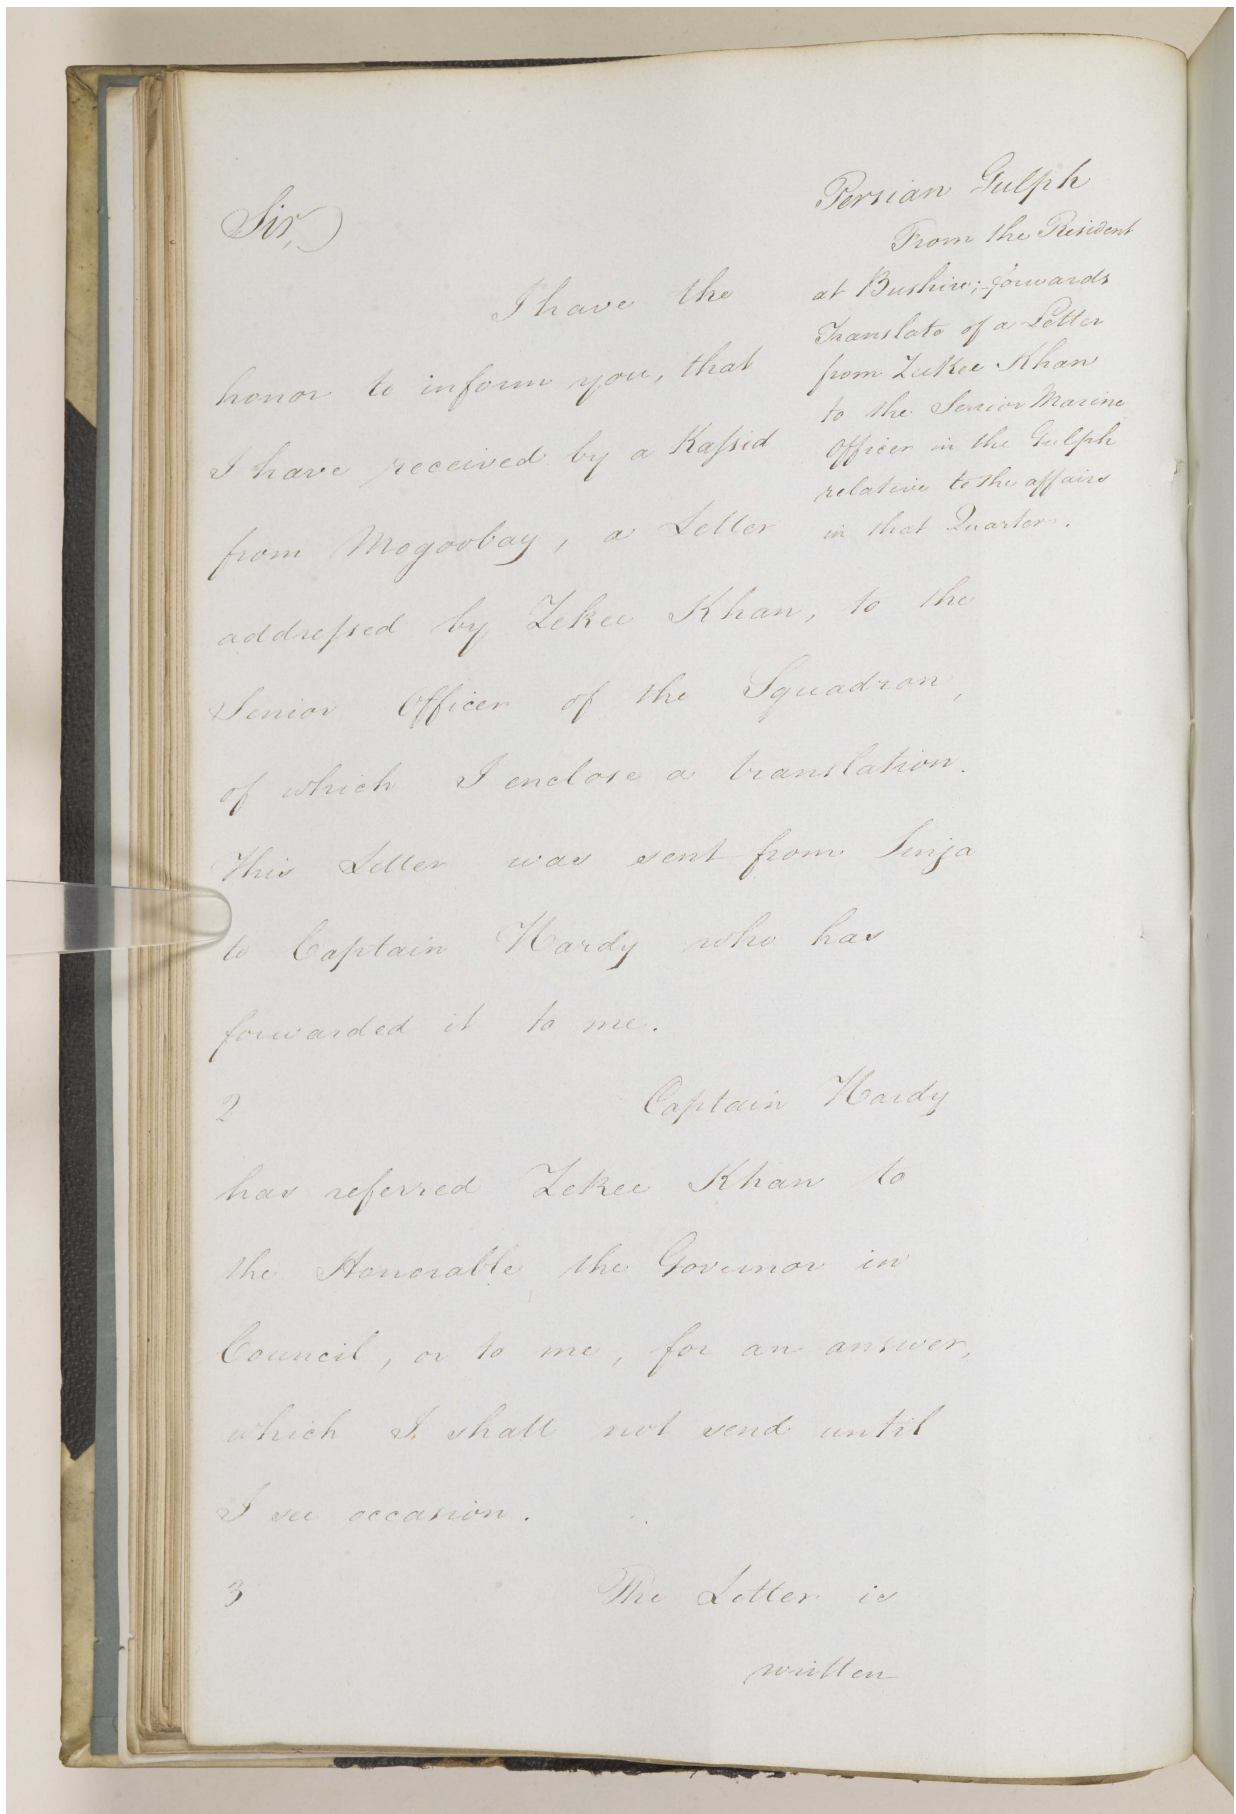 Persian Gulph
From the Resident
at Bushire; forwards
Translate of a Letter
from Zukee Khan
to the Senior Marine
Officer in the Gulph
relative to the affairs
in that Quarter.
Sir,
I have the
honor to inform you, that
I have received by a Kaſsid
from Mogoobay, a Letter
addreſsed by Zekee Khan, to the
Senior Officer of the Squadron,
of which I enclose a translation.
This Letter was sent from Linja
to Captain Hardy who has
forwarded it to me.
2 Captain Hardy
has referred Zekee Khan to
the Honorable the Governor in
Council, or to me, for an answer,
which I shall not send until
I see occasion.
3 The Letter is
written